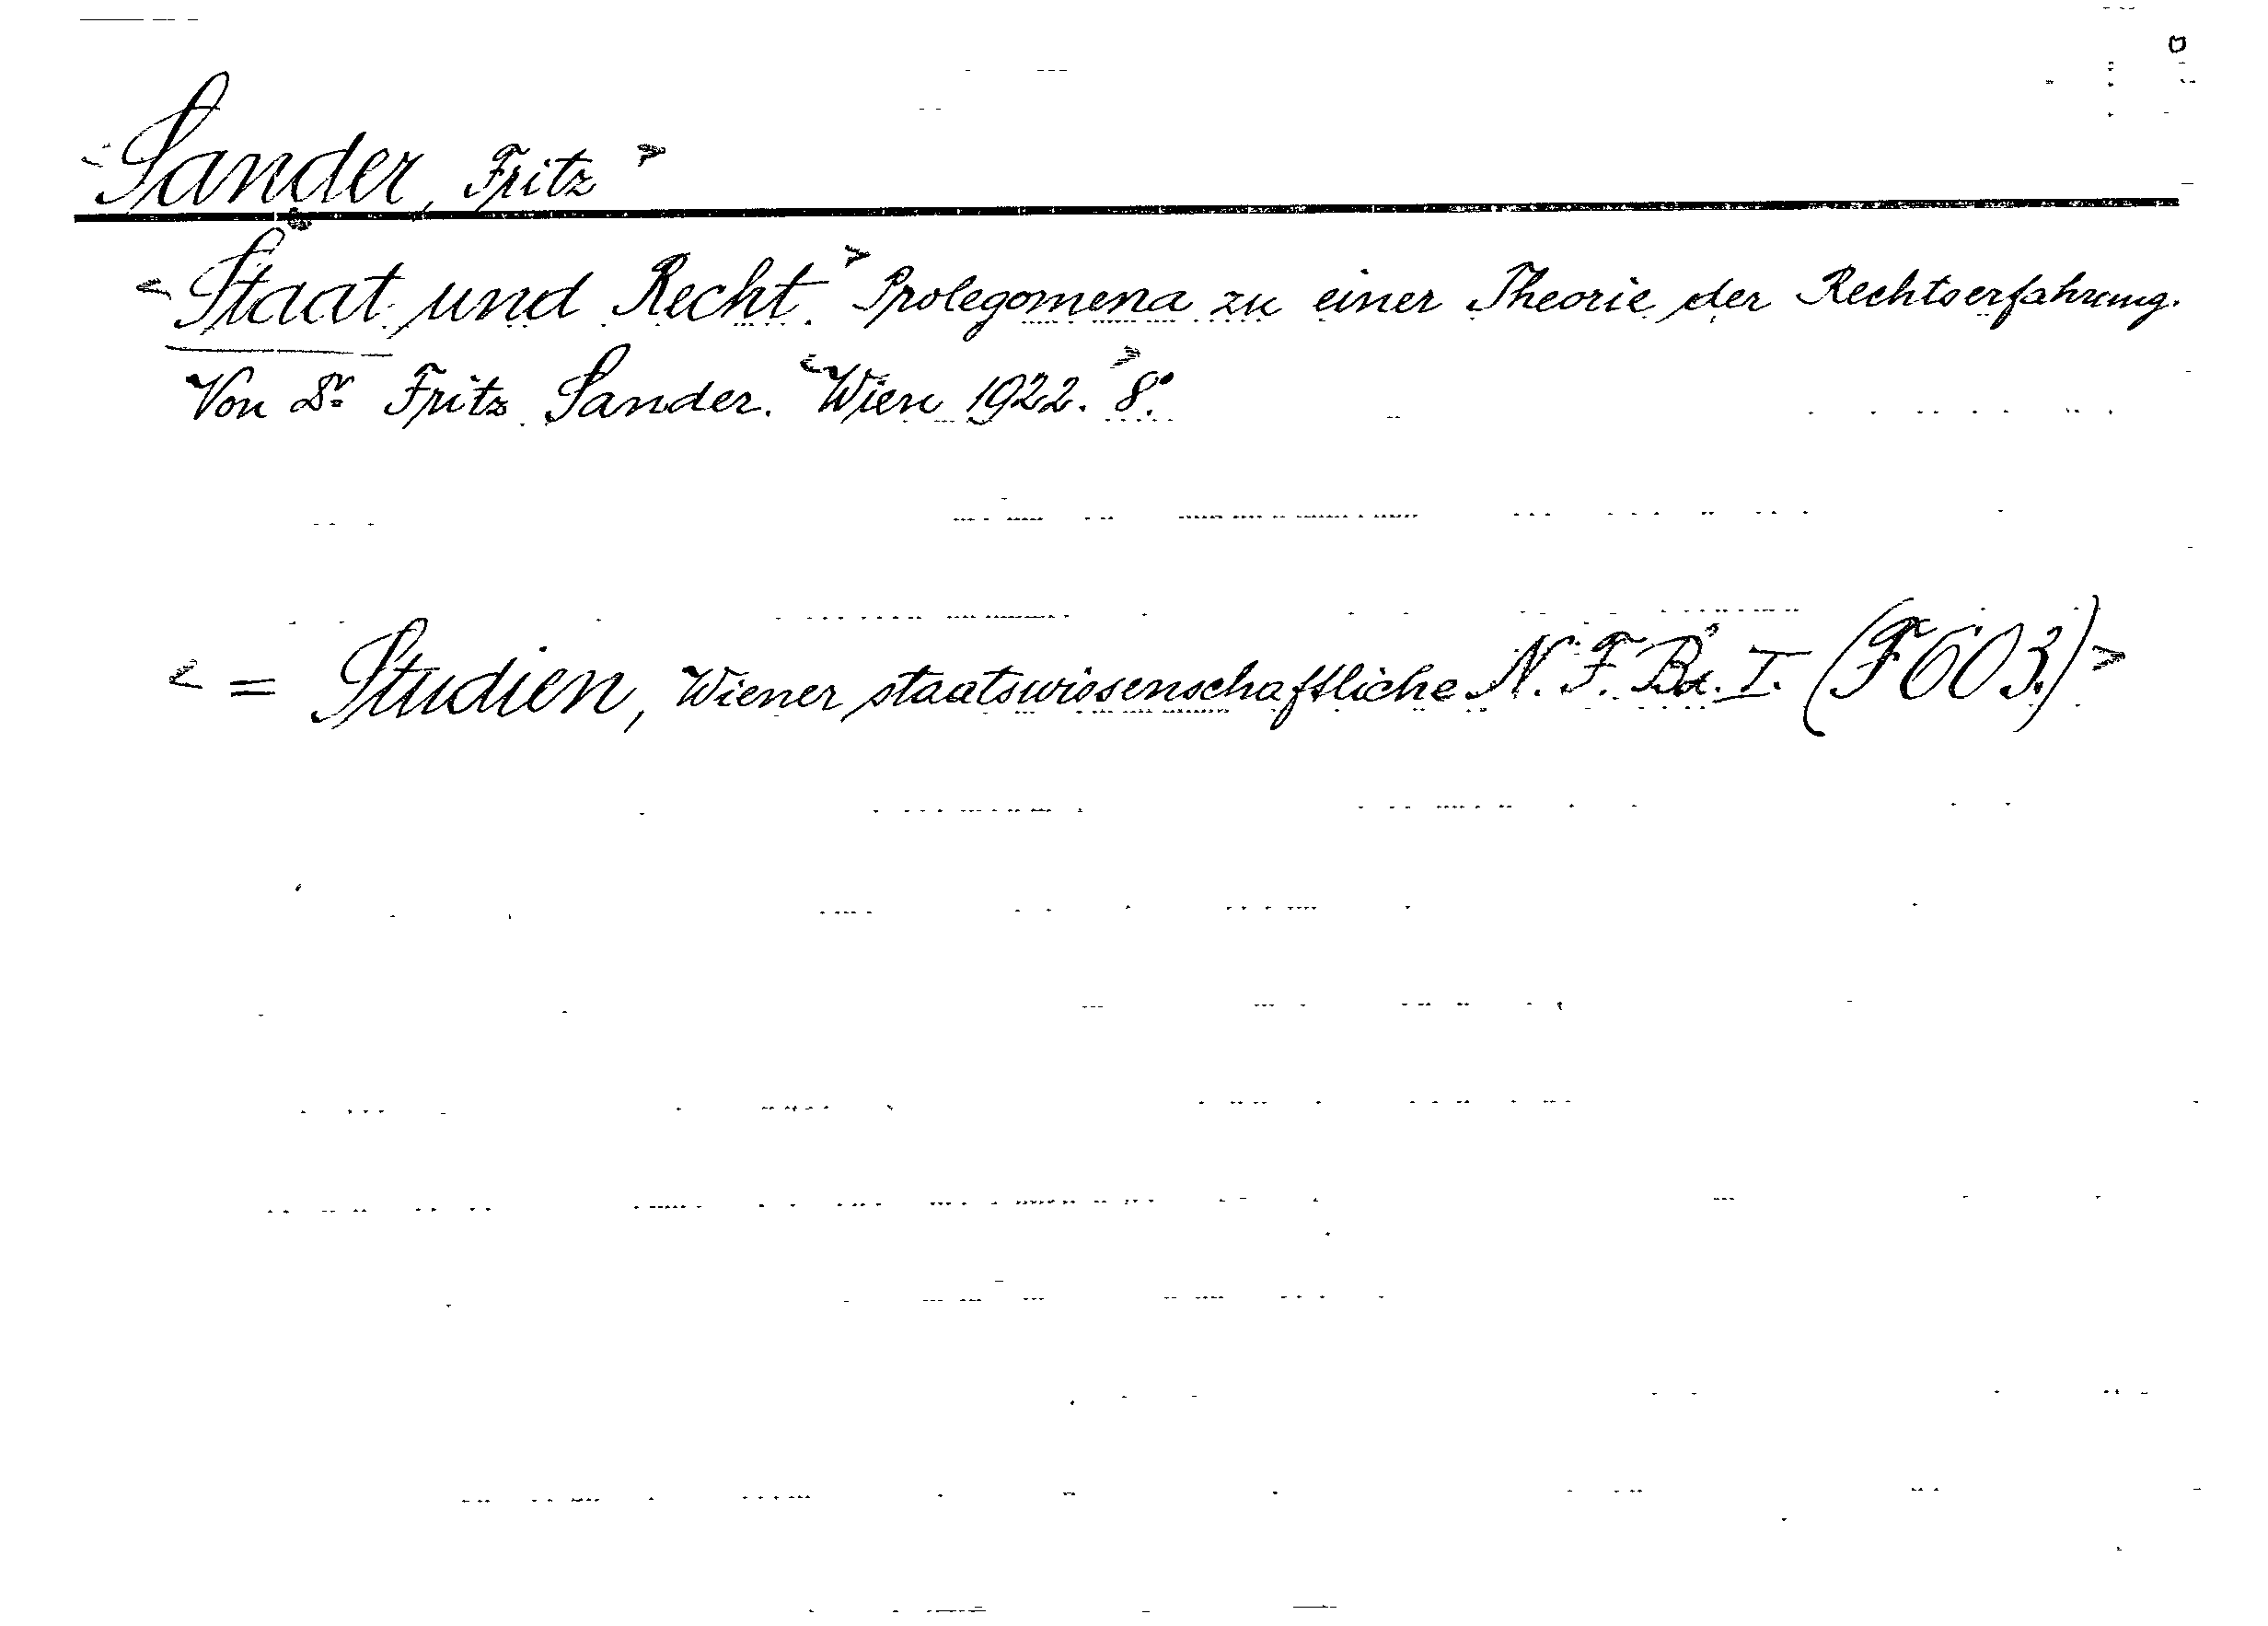 <Sander, Fritz>
<Staat und Recht.> Prolegomena zu einer Theorie der Rechtserfahrung.
Von Dr. Fritz Sander. <Wien 1922.> 8°.
< = Studien, Wiener staatswissenschaftliche N. F. Bd. I. (F603.)>